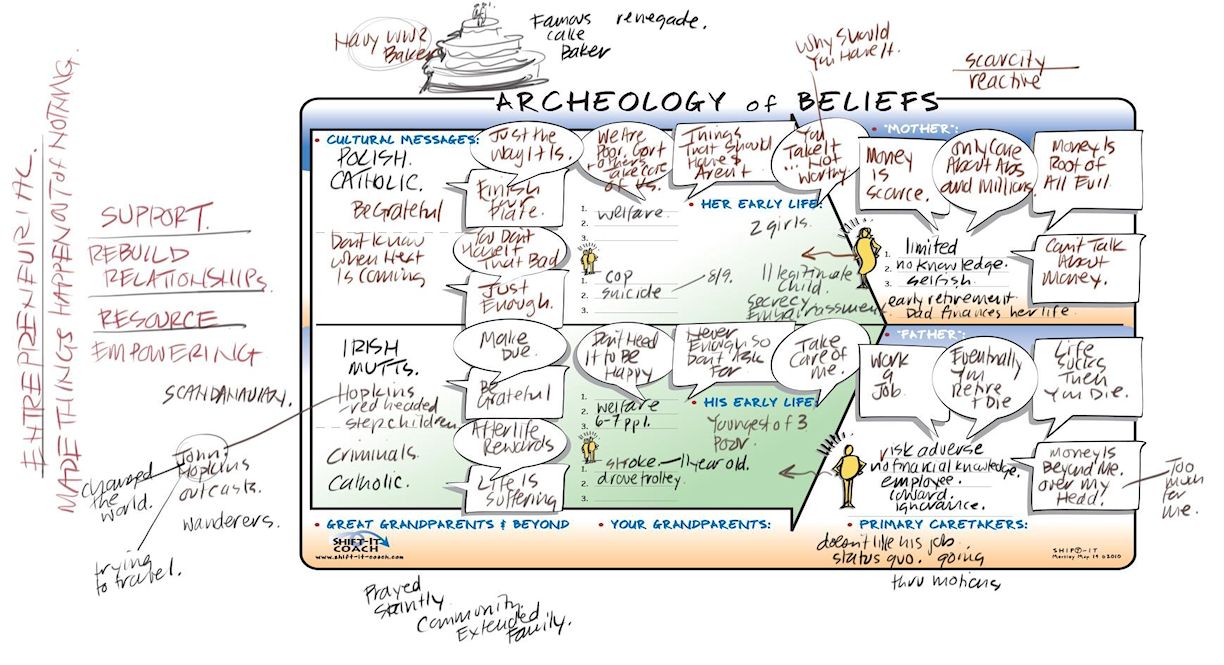 Navy WW2
Baker
Famous renegade.
cake
Baker
Why Should
You Have It.
scarcity
reactive
ENTREPRENEURIAL.
MADE THINGS HAPPEN OUT OF NOTHING.
SUPPORT.
REBUILD
RELATIONSHIPS.
RESOURCE
EMPOWERING
SCANDANAVIAN.
John
Hopkins
outcasts.
wanderers.
changed
the
world.
trying
to travel.
ARCHEOLOGY of BELIEFS
• CULTURAL MESSAGES:
POLISH.
CATHOLIC.
Be Grateful
Don't know
when Heat
Is Coming
Just the
Way It Is.
Finish
Your
Plate.
You Don't
Have It
That Bad
Just
Enough.
We Are
Poor, Gov't
+ others
take care
of Us.
Things
That Should
Have &
Aren't
You
Take It
... Not
Worthy.
1. welfare.
2.
3.
1. cop
2. suicide — 8/9.
3.
• HER EARLY LIFE:
2 girls.
Illegitimate
Child.
secrecy
Embarrassment
• "MOTHER":
Money
Is
Scarce.
Only Care
About Abs
and Millions.
Money Is
Root of
All Evil.
1. limited
2. no knowledge.
3. selfish.
early retirement
Dad finances her life.
Can't Talk
About
Money.
IRISH
MUTTS.
Hopkins
- red headed
step children
Criminals.
Catholic.
Make
Due.
Be
Grateful
Afterlife
Rewards
Life Is
Suffering
Don't Need
It to Be
Happy
Never
Enough So
Don't Ask
For
Take
Care of
Me.
1. welfare
2. 6-7 ppl.
3.
1. stroke — 11 year old.
2. drove trolley.
3.
• HIS EARLY LIFE:
Youngest of 3
Poor.
• "FATHER":
Work
A
Job.
Eventually
You
Retire
+ Die
Life
Sucks
Then
You Die.
risk adverse
no financial knowledge.
employee.
coward.
ignorance.
Money Is
Beyond Me.
Over My
Head!
Too
much
for
me.
• GREAT GRANDPARENTS & BEYOND
• YOUR GRANDPARENTS:
• PRIMARY CARETAKERS:
doesn't like his job.
status quo. going
thru motions
SHIFT-IT
COACH
www.shift-it-coach.com
SHIFT-IT
©2010
Prayed
Community.
Extended
Family.